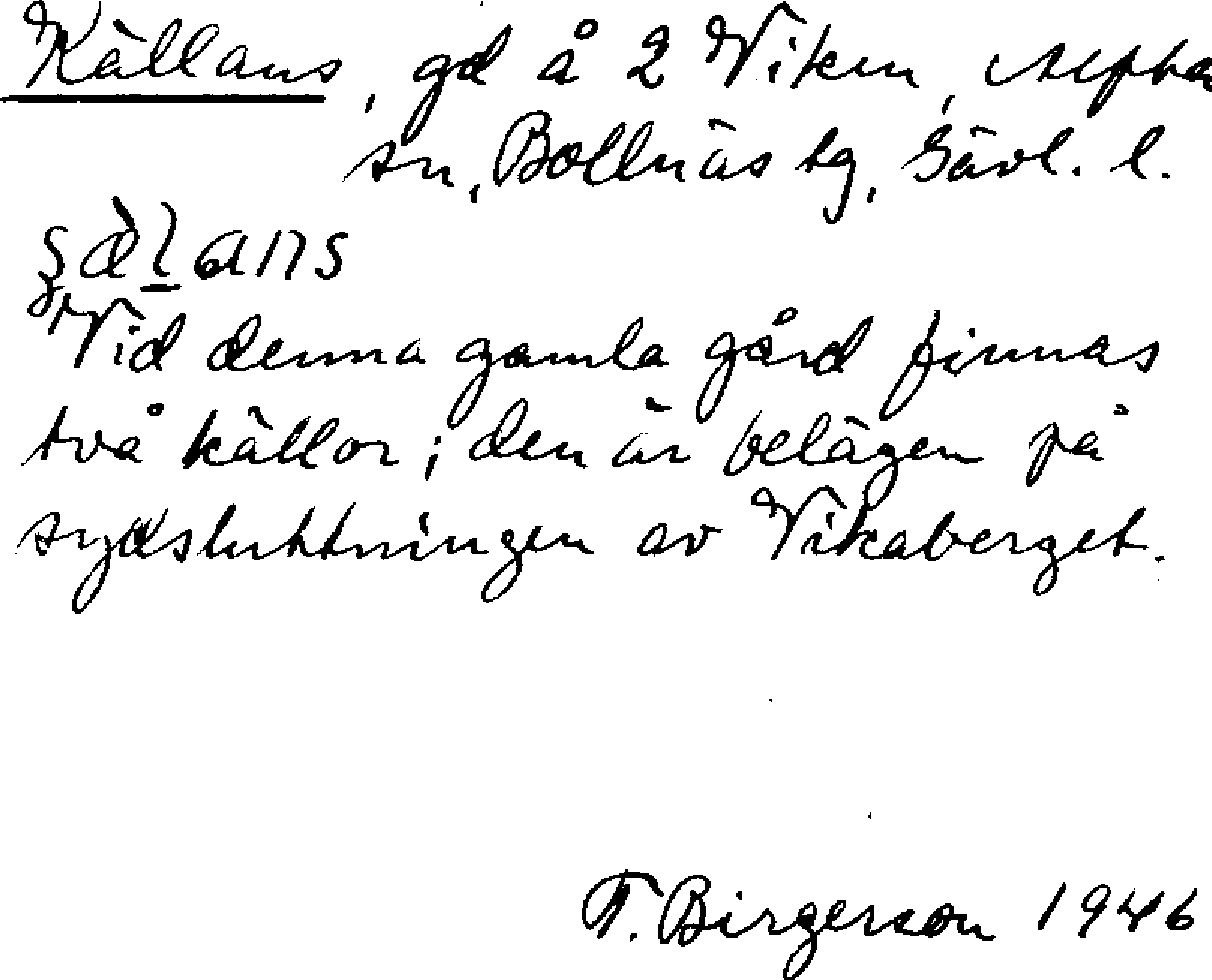 Källans, gd å 2 Viken, Alfta
sn, Bollnäs tg, Gävl. l.
Vid denna gamla gård finnas
två källor; den är belägen på
sydsluttningen av Vikaberget.
T. Birgerson 1946